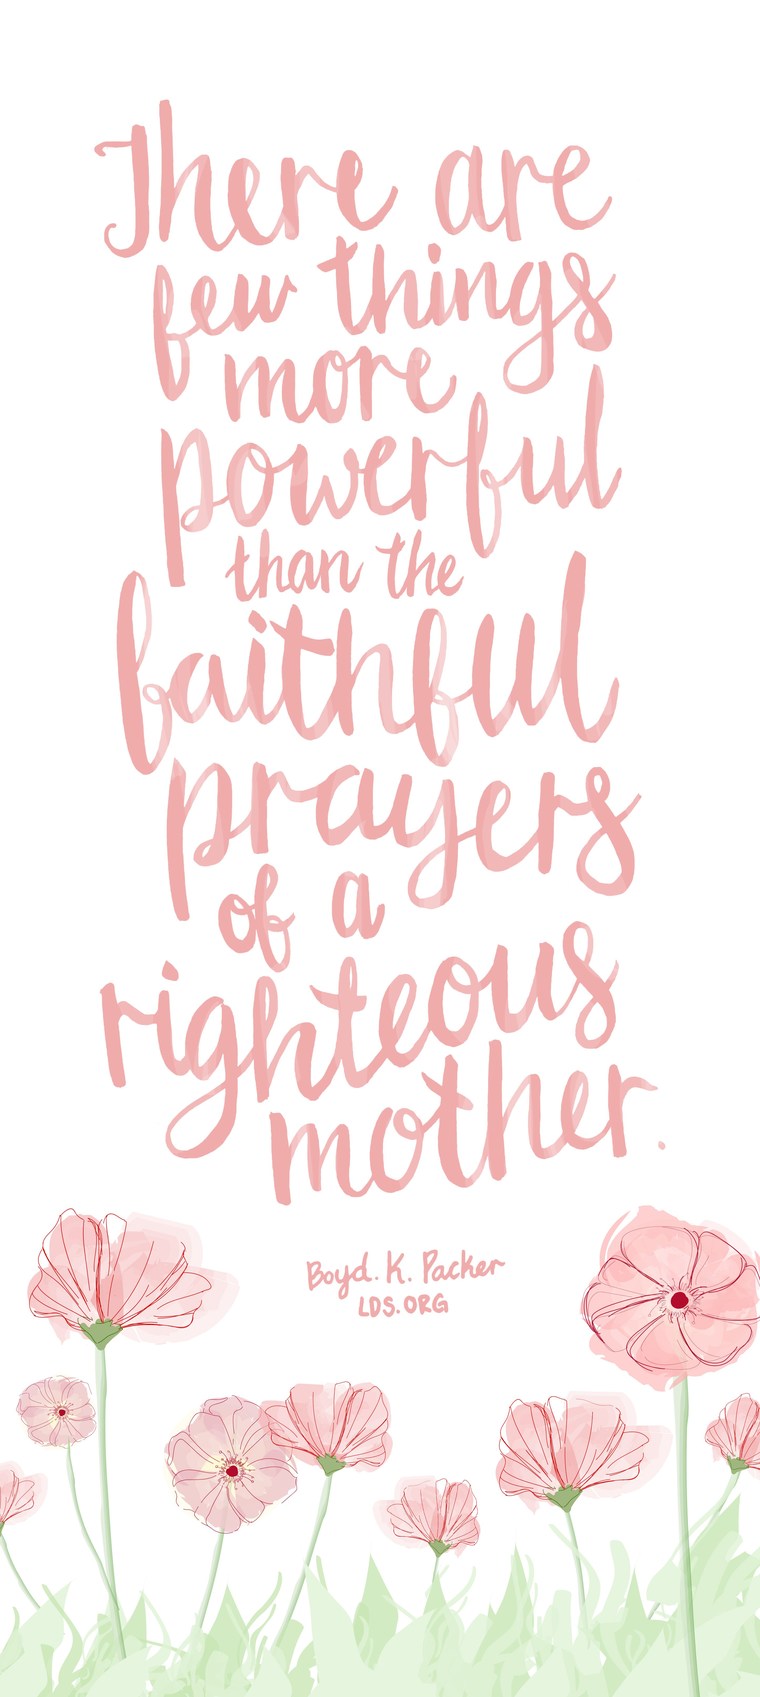 There are
few things
more
powerful
than the
faithful
prayers
of a
righteous
mother.
Boyd. K. Packer
LDS.ORG